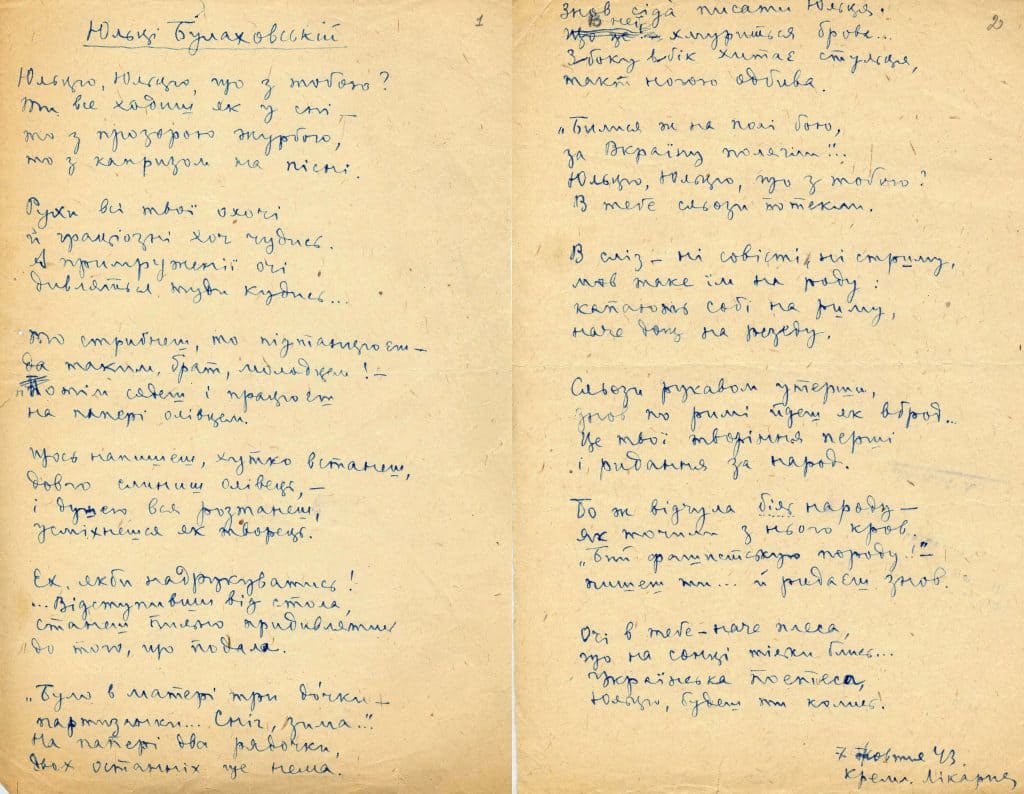 1
Юльці Булаховській
Юльцю, Юльцю, що з тобою?
Ти все ходиш як у сні, –
то з прозорою журбою,
то з капризом на пісні.
Рухи всі твої охочі
й граціозні хоч чудись.
А примруженії очі
дивляться туди кудись...
То стрибнеш, то підтанцюєш –
да таким, брат, молодцем! –
Потім сядеш і працюєш
на папері олівцем.
Щось напишеш, хутко встанеш,
довго слиниш олівець, –
і душею вся розтанеш,
усміхнешся як творець.
Ех, якби надрукуватись!
...Відступивши від стола,
станеш пильно придивлятись
до того, що подала.
„Було в матері три дочки –
партизанки... Сніг, зима..."
На папері два рядочки,
двох останніх ще нема.
2
Знов сіда писати Юльця.
В неї
Що це – хмуриться брова...
З боку в бік хитає стульця,
такт ногою одбива.
„Билися ж на полі бою,
за Вкраїну полягли"...
Юльцю, Юльцю, що з тобою?
В тебе сльози потекли.
В сліз – ні совісті, ні стриму,
мов таке їм на роду:
капають собі на риму,
наче дощ на резеду.
Сльози рукавом утерши,
знов по римі йдеш як вброд...
Це твої творіння перші
і ридання за народ.
Бо ж відчула біль народу –
як точили з нього кров...
„Бий фашистську породу!" –
пишеш ти... й ридаєш знов.
Очі в тебе – наче плеса,
що на сонці тільки блись...
Українська поетеса,
Юльцю, будеш ти колись.
7 жовтня 43.
Кремл. Лікарня